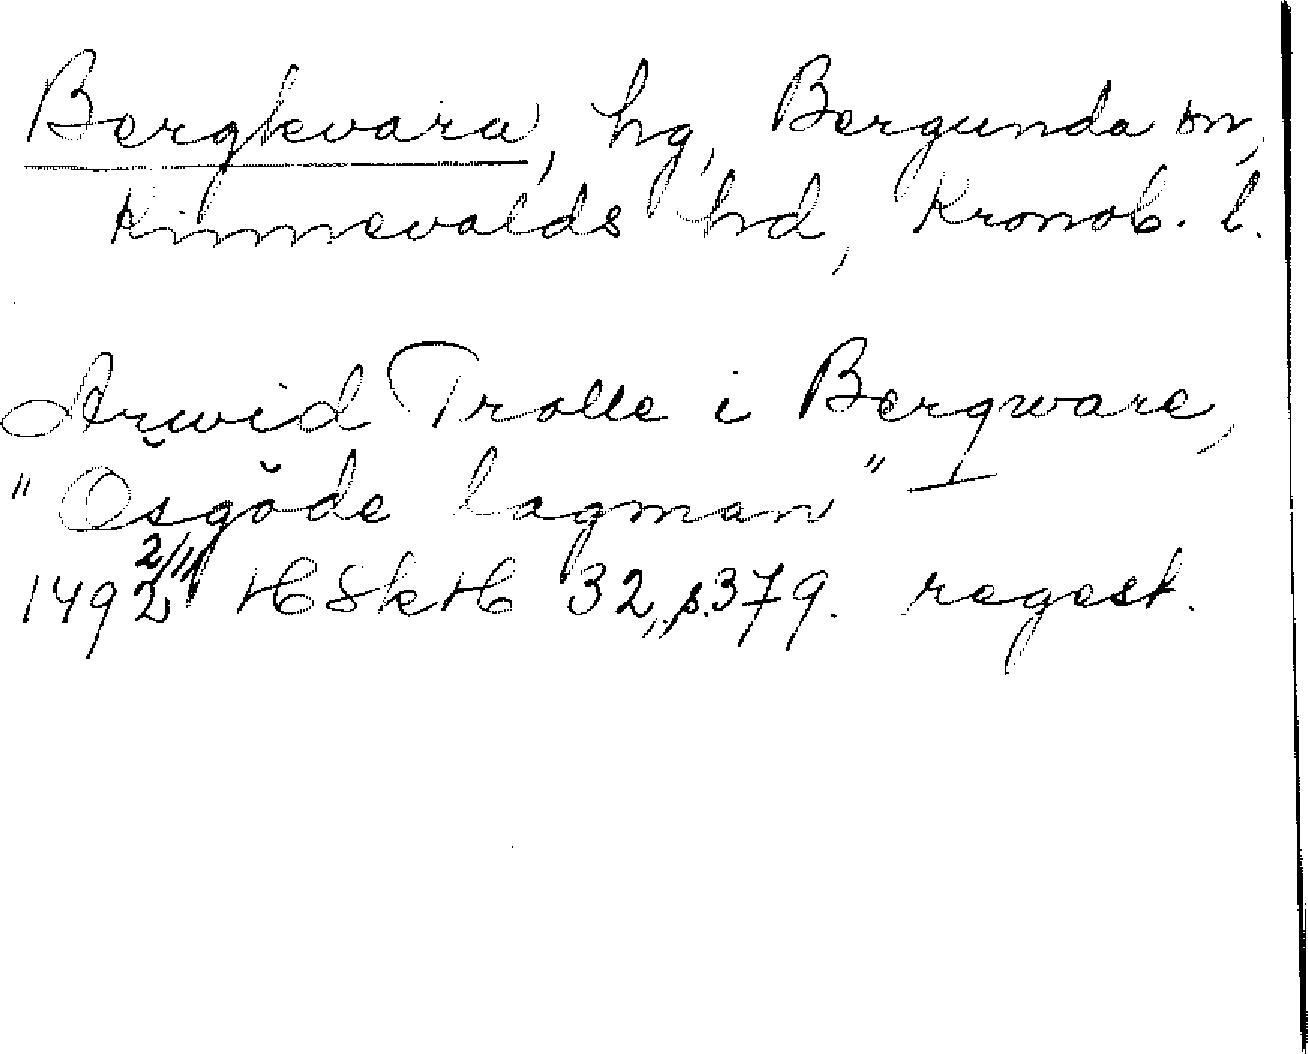 Bergkvara, hg, Bergunda sn,
Kinnevalds hd, Kronob. l.
Arwid Trolle i Bergware,
"Ösgöde lagman"
1492 2/11 HSkH 32, p.379. regest.